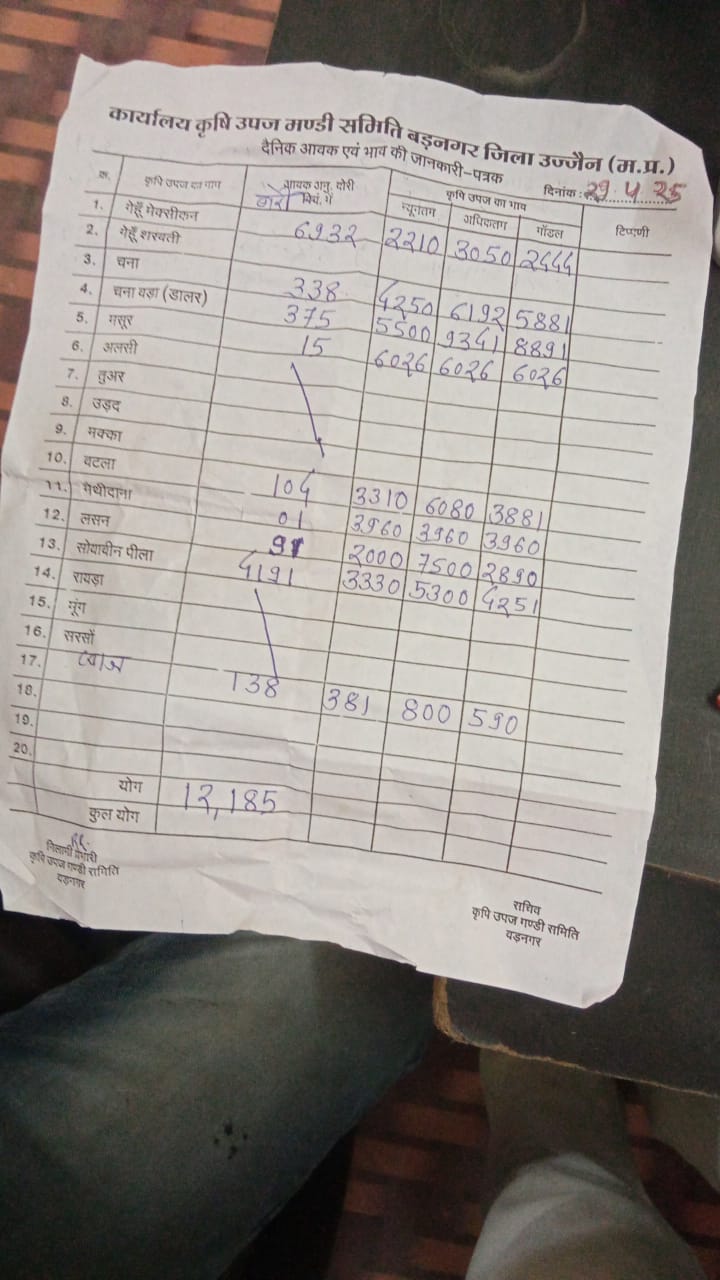 कार्यालय कृषि उपज मण्डी समिति बड़नगर जिला उज्जैन (म.प्र.)
दैनिक आवक एवं भाव की जानकारी-पत्रक
दिनांक : 29.4.25
क्र. कृषि उपज का नाम आवक अनु. बोरी कृषि उपज का भाव टिप्पणी
बोरी क्विं. में न्यूनतम अधिकतम मॉडल
1. गेहूँ मेक्सीकन 6932 2210 3050 2444
2. गेहूँ शरबती
3. चना 338 4250 6192 5881
4. चना वड़ा (डालर) 375 5500 9341 8891
5. मसूर 15 6026 6026 6026
6. अलसी
7. तुअर
8. उड़द
9. मक्का
10. बटला 104 3310 6080 3881
11. मेथीदाना 01 3960 3960 3960
12. लसन 91 2000 7500 2890
13. सोयाबीन पीला 4191 3330 5300 4251
14. रायड़ा
15. मूंग
16. सरसों
17. प्याज 138 381 800 590
18.
19.
20.
योग 12,185
कुल योग
निलामी प्रभारी
कृषि उपज मण्डी समिति
बड़नगर
सचिव
कृषि उपज मण्डी समिति
बड़नगर